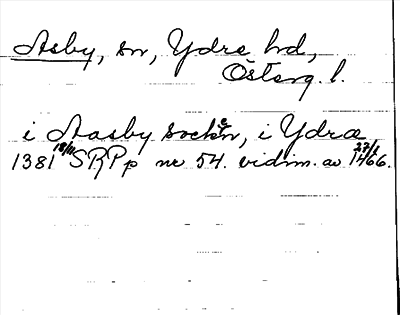 Asby, sn, Ydre hd,
Österg. l.
i Aasby sockn, i Ydræ
1381 18/11 SRPp nr 54. vidim. av 27/1 1466.